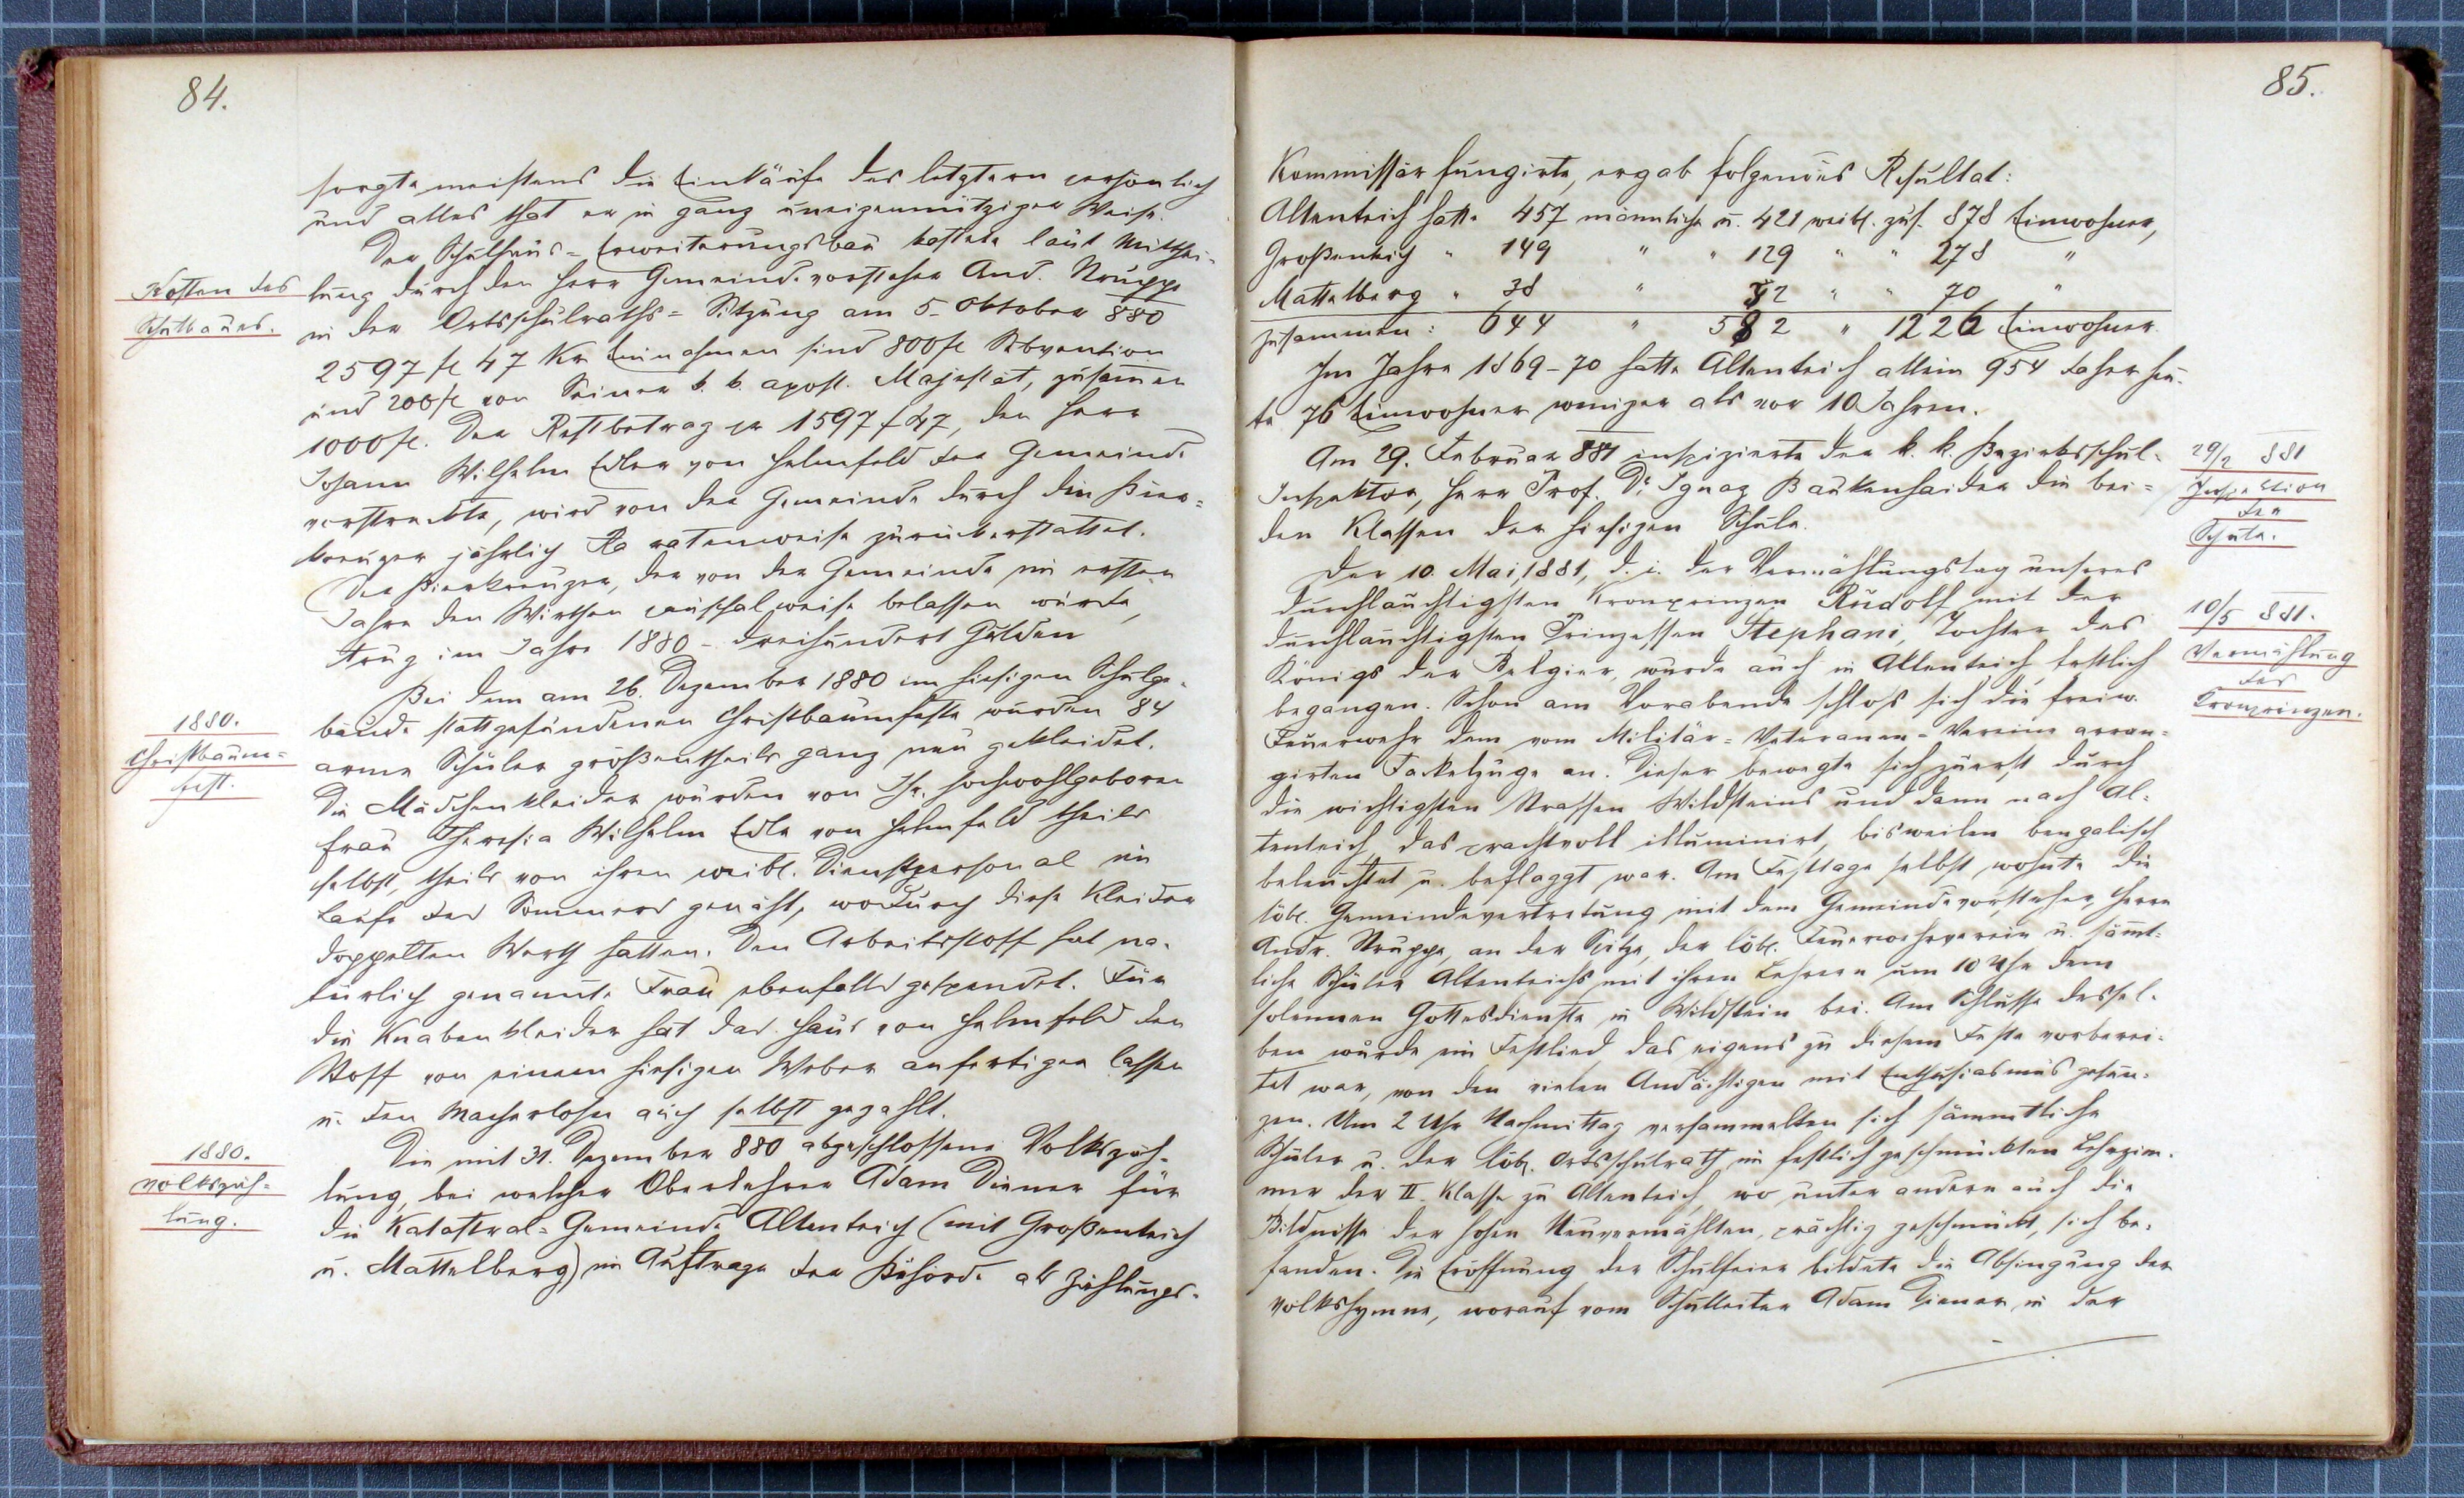 84.
sorgte meistens die Einkäufe des letztern persönlich
und alles that er in ganz uneigennütziger Weise.
Der Schulhaus-Erweiterungsbau kostete laut Mitthei-
Kosten des
Schulbaues.
lung durch den Herr Gemeindevorsteher And. Stupp
in der Ortsschulraths-Sitzung am 5. Oktober 880
2597 fl 47 Kr. Einnahmen sind 800 fl Subvention
und 200 fl von Seiner k. k. apost. Majestät, zusammen
1000 fl. Der Restbetrag pr 1597 f 47, den Herr
Johann Wilhelm Edler von Helmfeld der Gemeinde
vorstreckte, wird von der Gemeinde durch den Bier-
kreuzer jährlich ratenweise zurückerstattet.
Der Bierkreuzer, der von der Gemeinde im ersten
Jahre den Wirthen pauschalweise belassen wurde,
trug im Jahre 1880 – dreihundert Gulden
Bei dem am 26. Dezember 1880 im hiesigen Schulge-
1880.
Christbaum-
fest.
bäude stattgefundenen Christbaumfeste wurden 84
arme Schüler größentheils ganz neu gekleidet.
Die Mädchenkleider wurden von Ihr. Hochwohlgeboren
Frau Theresia Wilhelm Edle von Helmfeld theils
selbst, theils von ihren weibl. Dienstpersonal im
Laufe des Sommers genäht, wodurch diese Kleider
doppelten Werth hatten. Den Arbeitsstoff hat na-
türlich genannte Frau ebenfalls gespendet. Für
die Knabenkleider hat das Haus von Helmfeld den
Stoff von einem hiesigen Weber anfertigen lassen
u. den Macherlohn auch selbst gezahlt.
Die mit 31. Dezember 880 abgeschlossene Volkszäh-
1880.
Volkszäh-
lung.
lung, bei welcher Oberlehrer Adam Diener für
die Katastral-Gemeinde Altenteich (mit Großenteich
u. Mattelberg) im Auftrage der Behörde als Zählungs-
85.
Kommissär fungirte, ergab folgendes Resultat:
Altenteich hatte 457 männliche u. 421 weibl. zus. 878 Einwohner,
Großenteich " 149 " " 129 " " 278 "
Mattelberg " 38 " 32 " " 70 "
Zusammen: 644 " 582 " 1226 Einwohner.
Im Jahre 1869-70 hatte Altenteich allein 954 daher heu-
te 76 Einwohner weniger als vor 10 Jahren.
Am 29. Februar 881 inspizierte der k. k. Bezirksschul-
Inspektor, Herr Prof. Dr. Ignaz Baukenhaider die bei-
den Klassen der hiesigen Schule.
29/2 881
Inspektion
der
Schule.
Der 10. Mai 1881, d. i. der Vermählungstag unseres
durchlauchtigsten Kronprinzen Rudolf mit der
durchlauchtigsten Prinzessen Stephani, Tochter des
Königs der Belgier, wurde auch in Altenteich festlich
begangen. Schon am Vorabende schloß sich die freiw.
10/5 881.
Vermählung
des
Kronprinzen.
Feuerwehr dem vom Militär-Veteranen-Vereine arran-
girten Fackelzuge an. Dieser bewegte sich zuerst durch
die wichtigsten Strassen Wildsteins und dann nach Al-
tenteich, das prachtvoll illuminirt, bisweilen bengalisch
beleuchtet u. beflaggt war. Am Festtage selbst wohnte die
löbl. Gemeindevertretung mit dem Gemeindevorsteher, Herrn
Andr. Stupp, an der Spitze, der löbl. Feuerwehrverein u. sämt-
liche Schüler Altenteichs mit ihren Lehrern um 10 Uhr dem
solennen Gottesdienste in Wildstein bei. Am Schlusse dessel-
ben wurde ein Festlied, das eigens zu diesem Feste vorberei-
tet war, von den vielen Andächtigen mit Enthusiasmus gesun-
gen. Um 2 Uhr Nachmittag versammelten sich sämmtliche
Schüler u. der löbl. Ortsschulrath im festlich geschmückten Lehrzim-
mer der II. Klasse zu Altenteich, wo unter andern auch die
Bildnisse der hohen Neuvermählten, prächtig geschmückt, sich be-
fanden. Die Eröffnung der Schulfeier bildete die Absingung der
Volkshymne, worauf vom Schulleiter Adam Diener, in der